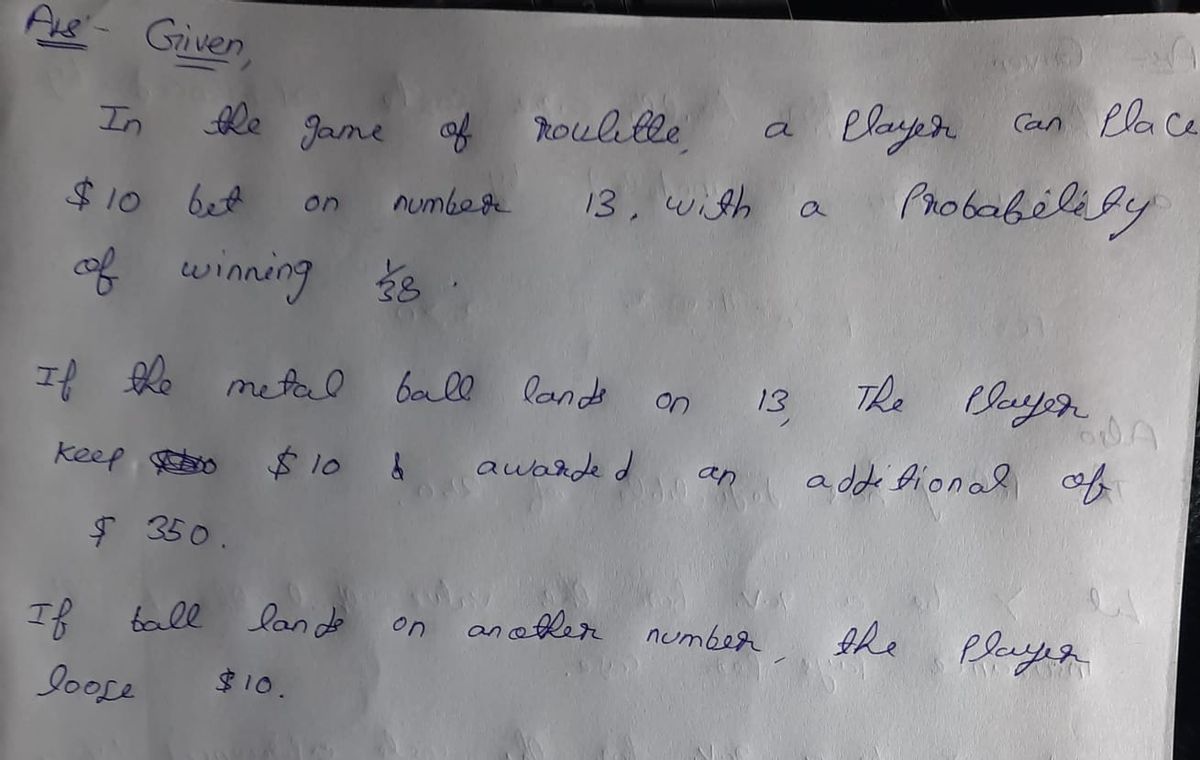 Ans:- Given,
In the game of roulette, a Player can Place
$10 bet on number 13, with a Probability
of winning 1/38.
If the metal ball lands on 13, The Player
Keep $10 & awarded an additional of
$ 350.
If ball lands on another number, the Player
loose $10.